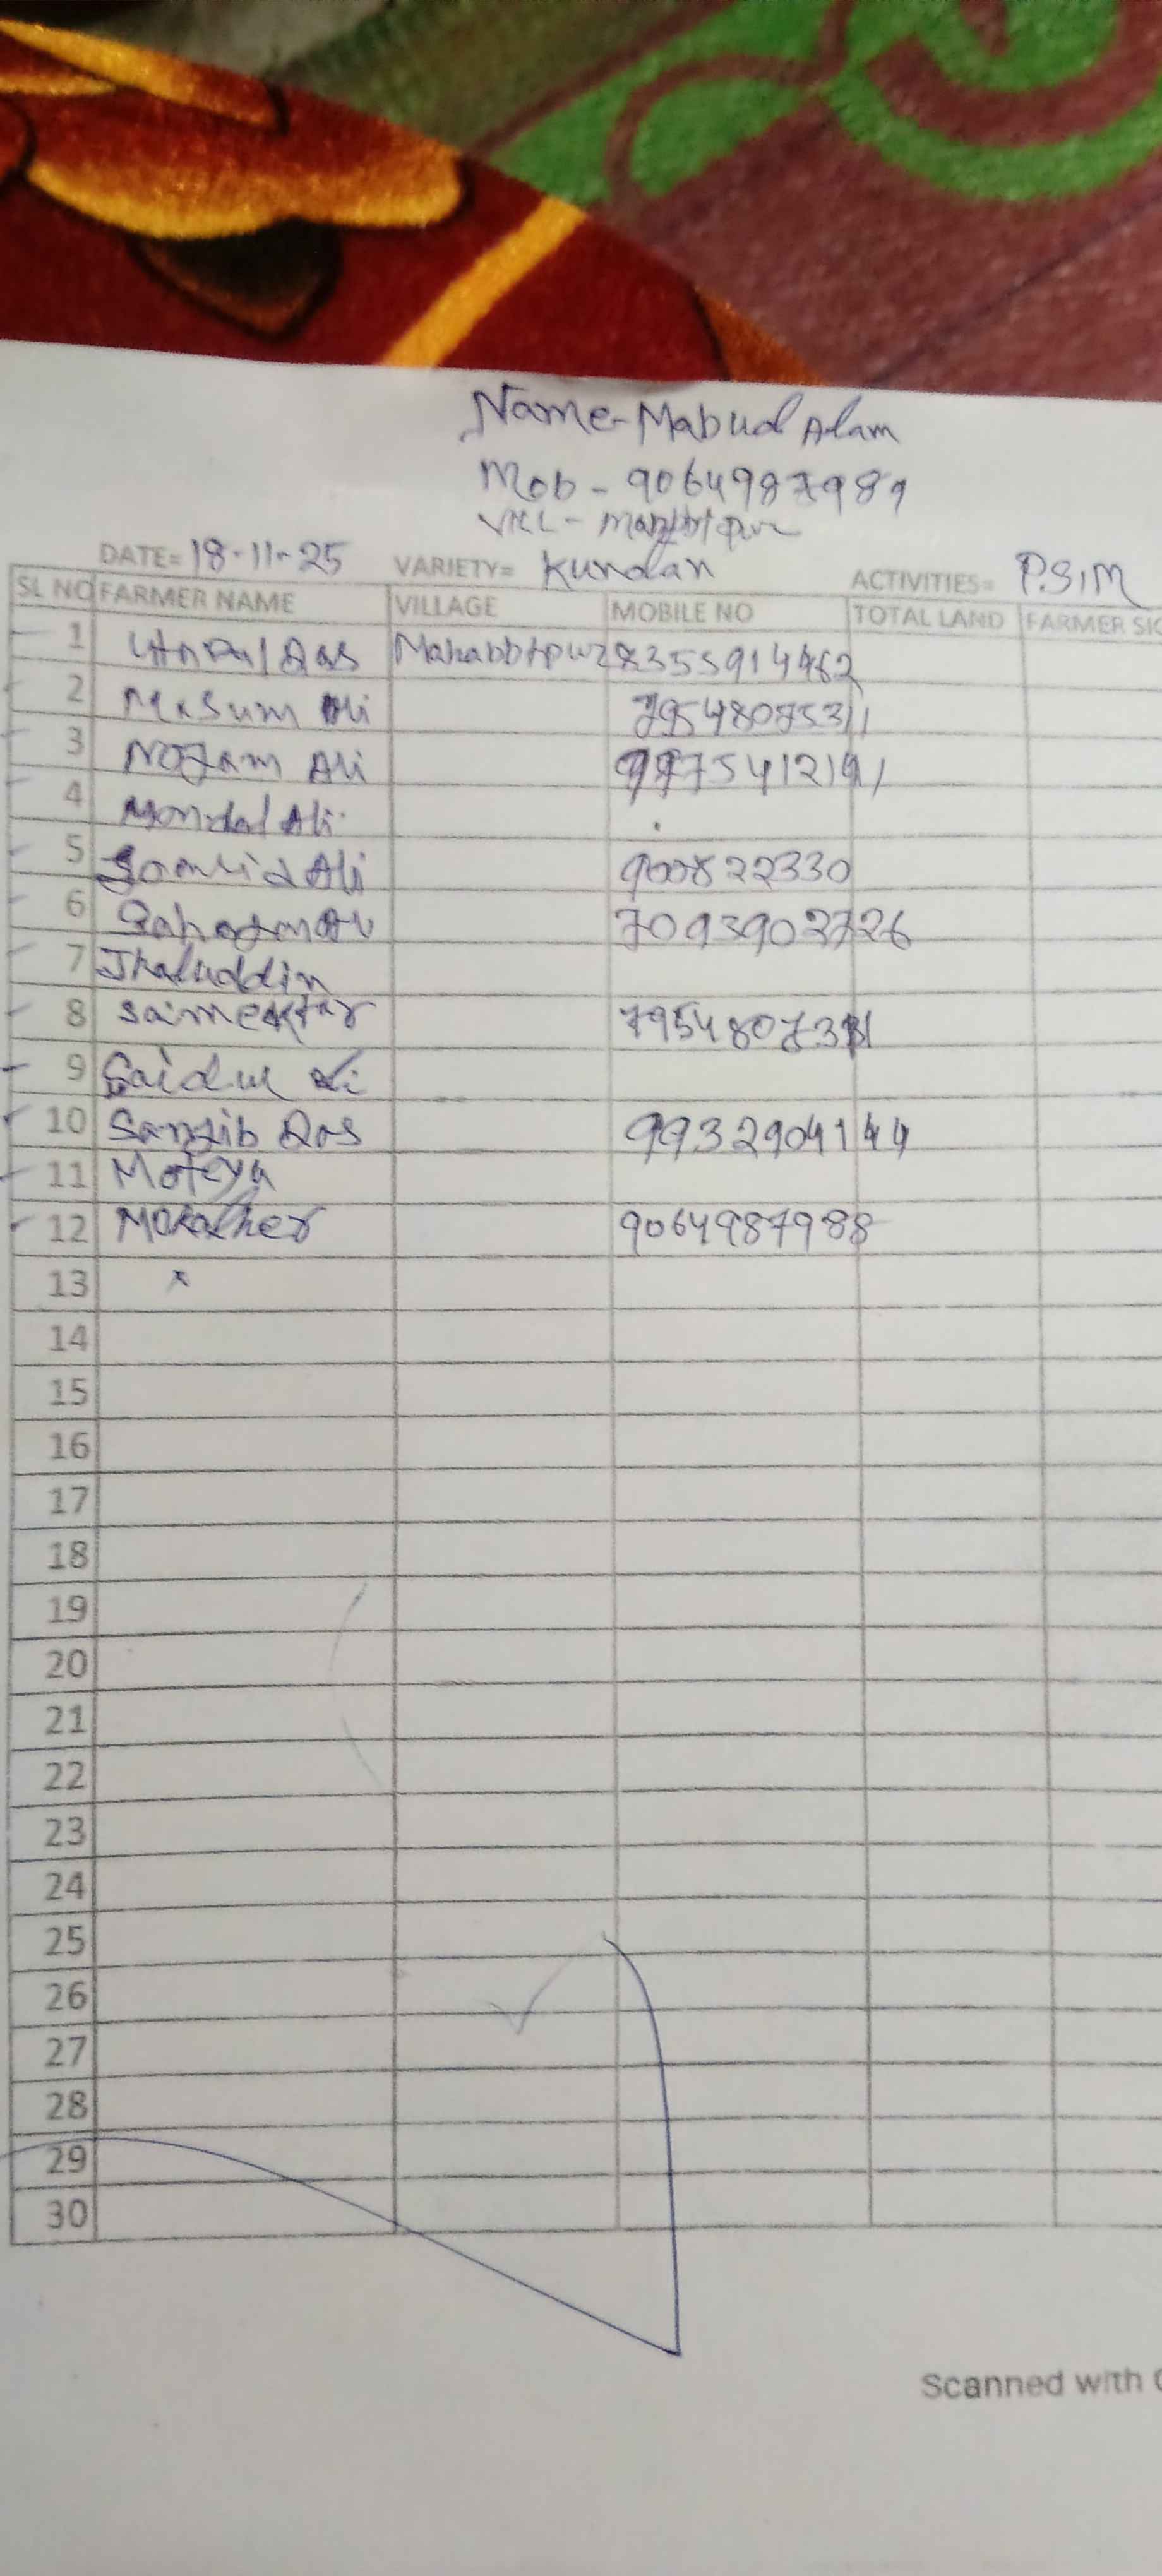 Name-Mabud Alam
Mob - 9064987989
Vill -
DATE= 18-11-25 VARIETY= Kundan ACTIVITIES= P.S.M
SL NO FARMER NAME VILLAGE MOBILE NO TOTAL LAND FARMER SIG
1 Das Mahabbtpur 8355914462
2 Masum Ali
3 Nojam Ali
4 Mondal Ali
5 Ali 900822330
6 7093903726
7 Jhaluddin
8 saimektar
9 Saidul Ali
10 Sanjib Das 9932904144
11 Moteya
12 9064987988
13 x
14
15
16
17
18
19
20
21
22
23
24
25
26
27
28
29
30
Scanned with C